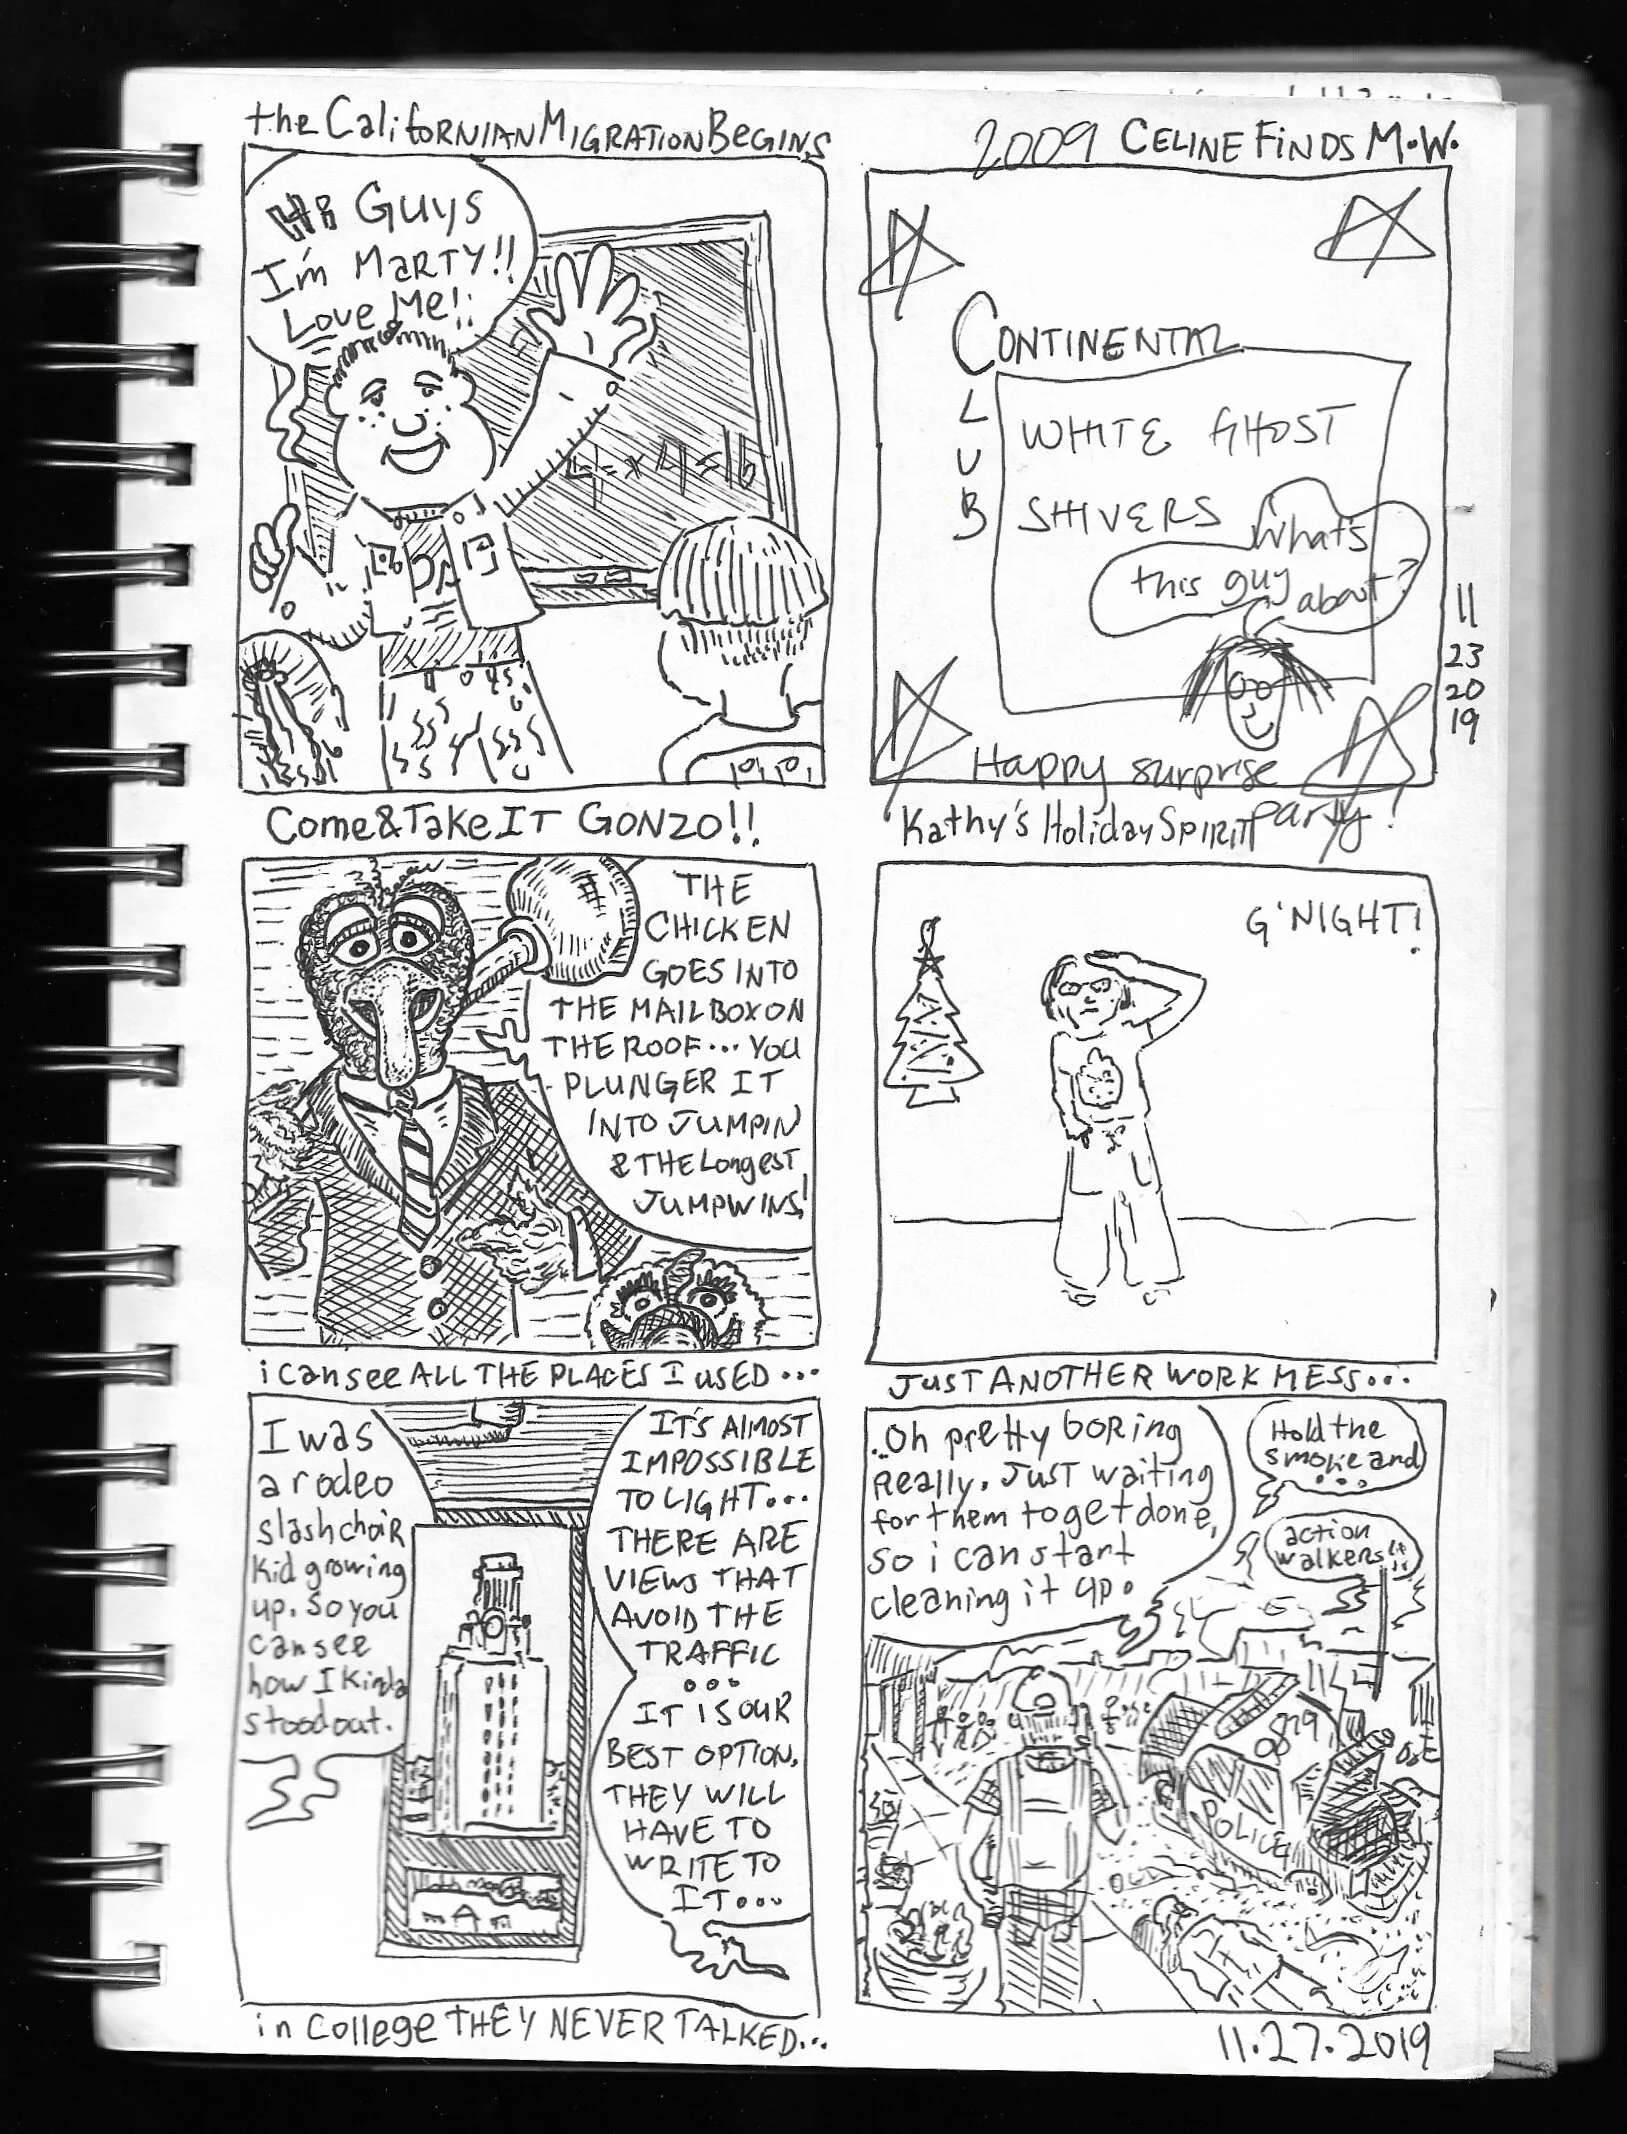 the CaliforNIAN MIGRATION BEGINS
Hi Guys
I'm MARTY!!
Love Me!!
4 x 4 = 16
Come & Take IT GONZO!!
2009 CELINE FINDS M.W.
CONTINENTAL
CLUB
WHITE GHOST
SHIVERS
What's
this guy
about?
Happy surprise
party!
11
23
20
19
Kathy's Holiday SPIRIT
THE
CHICKEN
GOES INTO
THE MAILBOX ON
THE ROOF... YOU
PLUNGER IT
INTO JUMPIN
& THE LONGEST
JUMP WINS!
G'NIGHT!
i can see ALL THE PLACES I USED...
JUST ANOTHER WORK MESS...
I was
a rodeo
slash choir
kid growing
up. So you
can see
how I kinda
stood out.
IT'S ALMOST
IMPOSSIBLE
TO LIGHT...
THERE ARE
VIEWS THAT
AVOID THE
TRAFFIC
...
IT IS OUR
BEST OPTION.
THEY WILL
HAVE TO
WRITE TO
IT...
..Oh pretty boring
really. Just waiting
for them to get done,
so i can start
cleaning it up.
Hold the
smoke and
...
action
walkers!!
POLICE
in College THEY NEVER TALKED...
11.27.2019